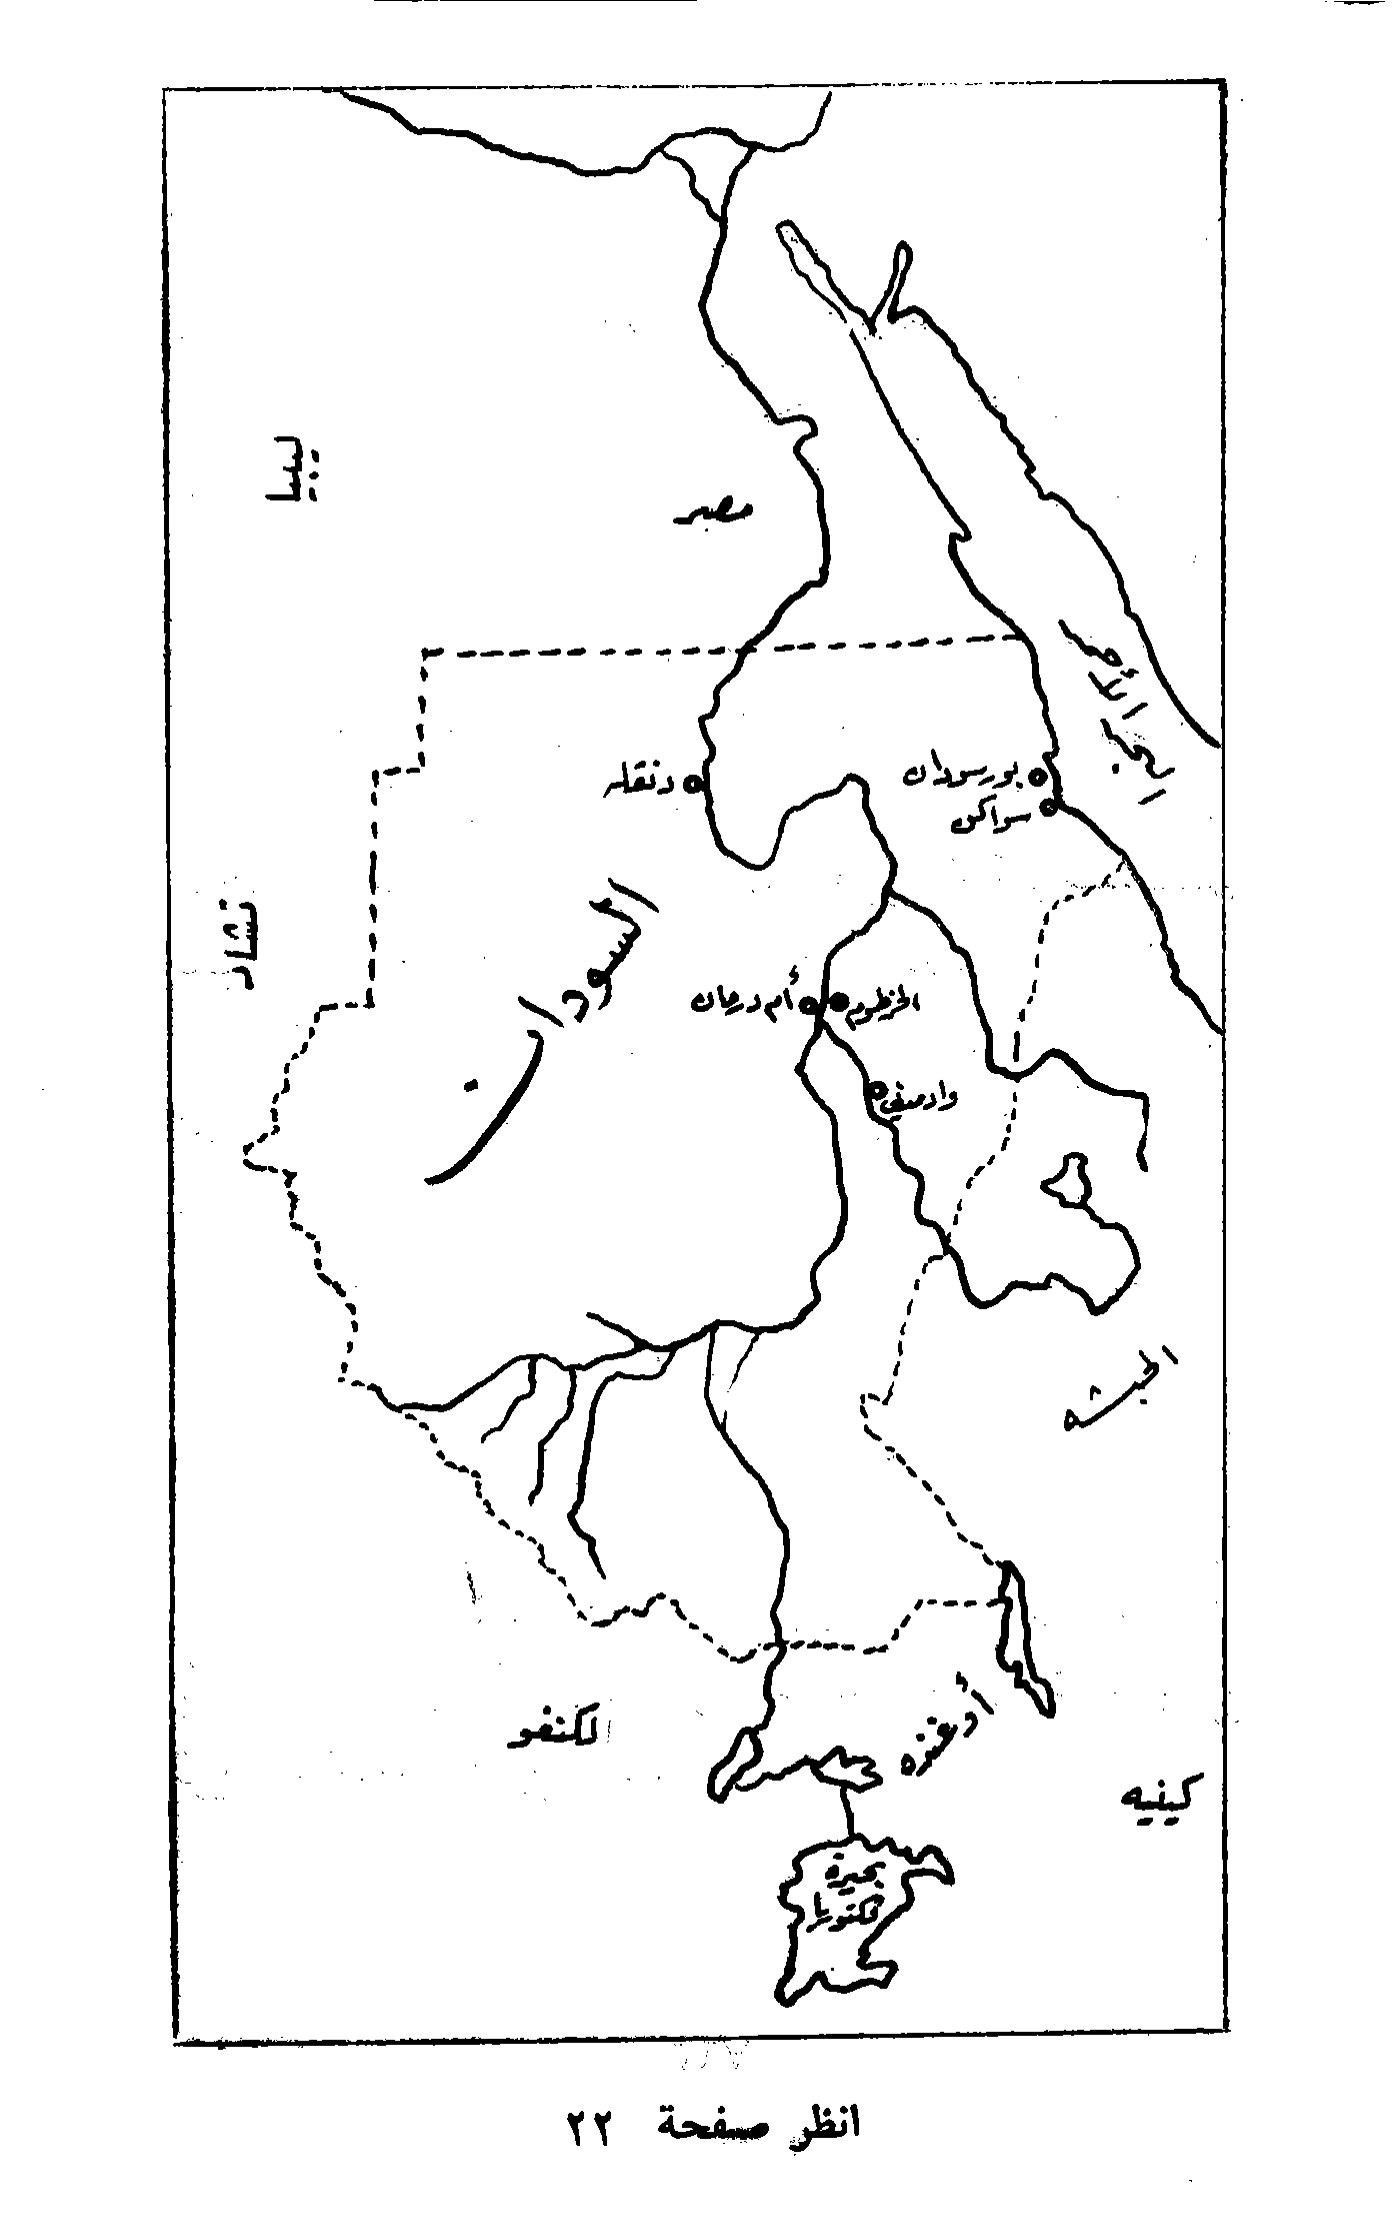 ليبيا
مصر
البحر الأحمر
دنقله
بورسودان
سواكن
تشاد
السودان
أم درمان
الخرطوم
وادمدني
الحبشه
الكنغو
أوغنده
كينيه
بحيرة
فكتوريا
انظر صفحة ٢٢